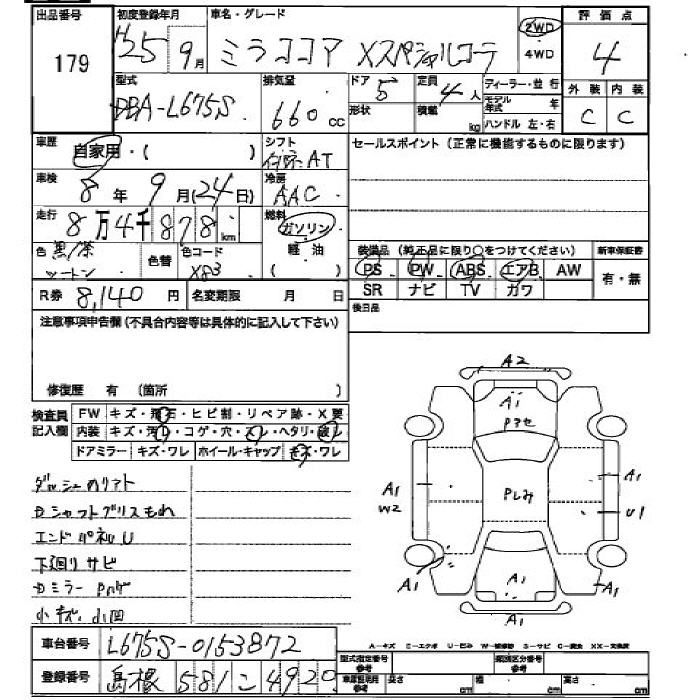 出品番号 初度登録年月 車名・グレード 評価点
179 H25 9月 ミラココア Xスペシャルコーデ 2WD 4WD 4
型式 排気量 ドア 定員 ディーラー・並行 外装 内装
DBA-L675S 660cc 5 4人 モデル年式 年 C C
形状 積載 kg ハンドル 左・右
車歴 自家用・( ) シフト AT セールスポイント(正常に機能するものに限ります)
車検 8年9月(24日) 冷房 AAC
走行 8万4千878km 燃料 ガソリン 軽油
色 黒/茶 ツートン 色替 色コード X83 装備品(純正品に限り○をつけてください) 新車保証書
PS PW ABS エアB AW 有・無
SR ナビ TV ガワ
R券 8,140円 名変期限 月 日 後日品
注意事項申告欄(不具合内容等は具体的に記入して下さい)
修復歴 有 (箇所 )
検査員記入欄 FW キズ・飛石・ヒビ割・リペア跡・X要
内装 キズ・汚レ・コゲ・穴・スレ・ヘタリ・破レ
ドアミラー キズ・ワレ ホイール・キャップ キズ・ワレ
A2
A1
Pハセ
A1 W2 Pしみ A1
U1
A1 A1 A1
Dシャフトブリスもれ
下廻りサビ
Dミラー Pハゲ
小キズ、小凹
A-キズ E-エクボ U-凹み W-補修跡 S-サビ C-腐食 XX-交換済
車台番号 L675S-0153872 型式指定番号 参考 類別区分番号 参考
登録番号 島根 581 こ 4920 車庫証明用 参考 長さ cm 幅 cm 高さ cm